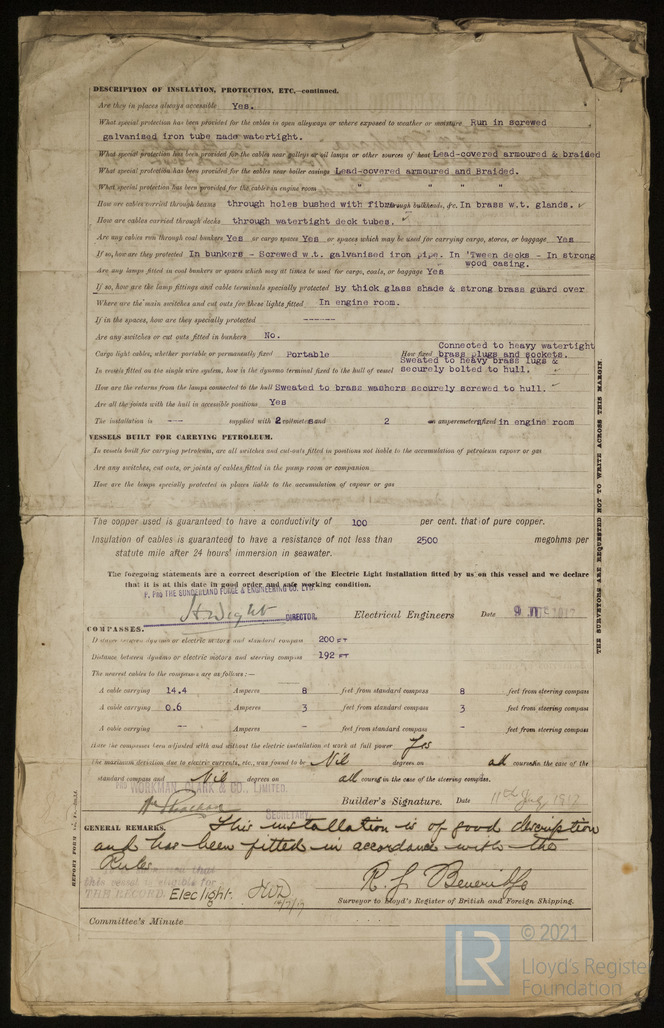 DESCRIPTION OF INSULATION, PROTECTION, ETC.—continued.
Are they in places always accessible Yes.
What special protection has been provided for the cables in open alleyways or where exposed to weather or moisture Run in screwed
galvanised iron tube made watertight.
What special protection has been provided for the cables near galleys or oil lamps or other sources of heat Lead-covered armoured & braided
What special protection has been provided for the cables near boiler casings Lead-covered armoured and Braided.
What special protection has been provided for the cables in engine room " " " "
How are cables carried through beams through holes bushed with fibre through bulkheads, &c. In brass w.t. glands.
How are cables carried through decks through watertight deck tubes.
Are any cables run through coal bunkers Yes or cargo spaces Yes or spaces which may be used for carrying cargo, stores, or baggage Yes
If so, how are they protected In bunkers - Screwed w.t. galvanised iron pipe. In 'Tween decks - In strong
wood casing.
Are any lamps fitted in coal bunkers or spaces which may at times be used for cargo, coals, or baggage Yes
If so, how are the lamp fittings and cable terminals specially protected By thick glass shade & strong brass guard over
Where are the main switches and cut outs for these lights fitted In engine room.
If in the spaces, how are they specially protected ------
Are any switches or cut outs fitted in bunkers No.
Connected to heavy watertight
Cargo light cables, whether portable or permanently fixed Portable How fixed brass plugs and sockets.
Sweated to heavy brass lugs &
In vessels fitted on the single wire system, how is the dynamo terminal fixed to the hull of vessel securely bolted to hull.
How are the returns from the lamps connected to the hull Sweated to brass washers securely screwed to hull.
Are all the joints with the hull in accessible positions Yes
The installation is --- supplied with 2 voltmeters and 2 an amperemeters fixed in engine room
VESSELS BUILT FOR CARRYING PETROLEUM.
In vessels built for carrying petroleum, are all switches and cut-outs fitted in positions not liable to the accumulation of petroleum vapour or gas
Are any switches, cut outs, or joints of cables fitted in the pump room or companion
How are the lamps specially protected in places liable to the accumulation of vapour or gas
The copper used is guaranteed to have a conductivity of 100 per cent. that of pure copper.
Insulation of cables is guaranteed to have a resistance of not less than 2500 megohms per
statute mile after 24 hours' immersion in seawater.
The foregoing statements are a correct description of the Electric Light installation fitted by us on this vessel and we declare
that it is at this date in good order and safe working condition.
P. Pro THE SUNDERLAND FORGE & ENGINEERING CO. LTD.
DIRECTOR. Electrical Engineers Date 9 1917
COMPASSES.
Distance between dynamo or electric motors and standard compass 200 FT
Distance between dynamo or electric motors and steering compass 192 FT
The nearest cables to the compasses are as follows:—
A cable carrying 14.4 Amperes 8 feet from standard compass 8 feet from steering compass
A cable carrying 0.6 Amperes 3 feet from standard compass 3 feet from steering compass
A cable carrying — Amperes - feet from standard compass - feet from steering compass
Have the compasses been adjusted with and without the electric installation at work at full power Yes
The maximum deviation due to electric currents, etc., was found to be Nil degrees on all courses in the case of the
standard compass and Nil degrees on all courses in the case of the steering compass.
Pro WORKMAN, CLARK & CO., LIMITED.
Builder's Signature. Date 11th July 1917
SECRETARY
GENERAL REMARKS. This installation is of good description
and has been fitted in accordance with the
Rules
that
this vessel is eligible for
THE RECORD. Elec light.
R. J. Beveridge
Surveyor to Lloyd's Register of British and Foreign Shipping.
Committee's Minute
THE SURVEYORS ARE REQUESTED NOT TO WRITE ACROSS THIS MARGIN.
LR © 2021
Lloyd's Register
Foundation